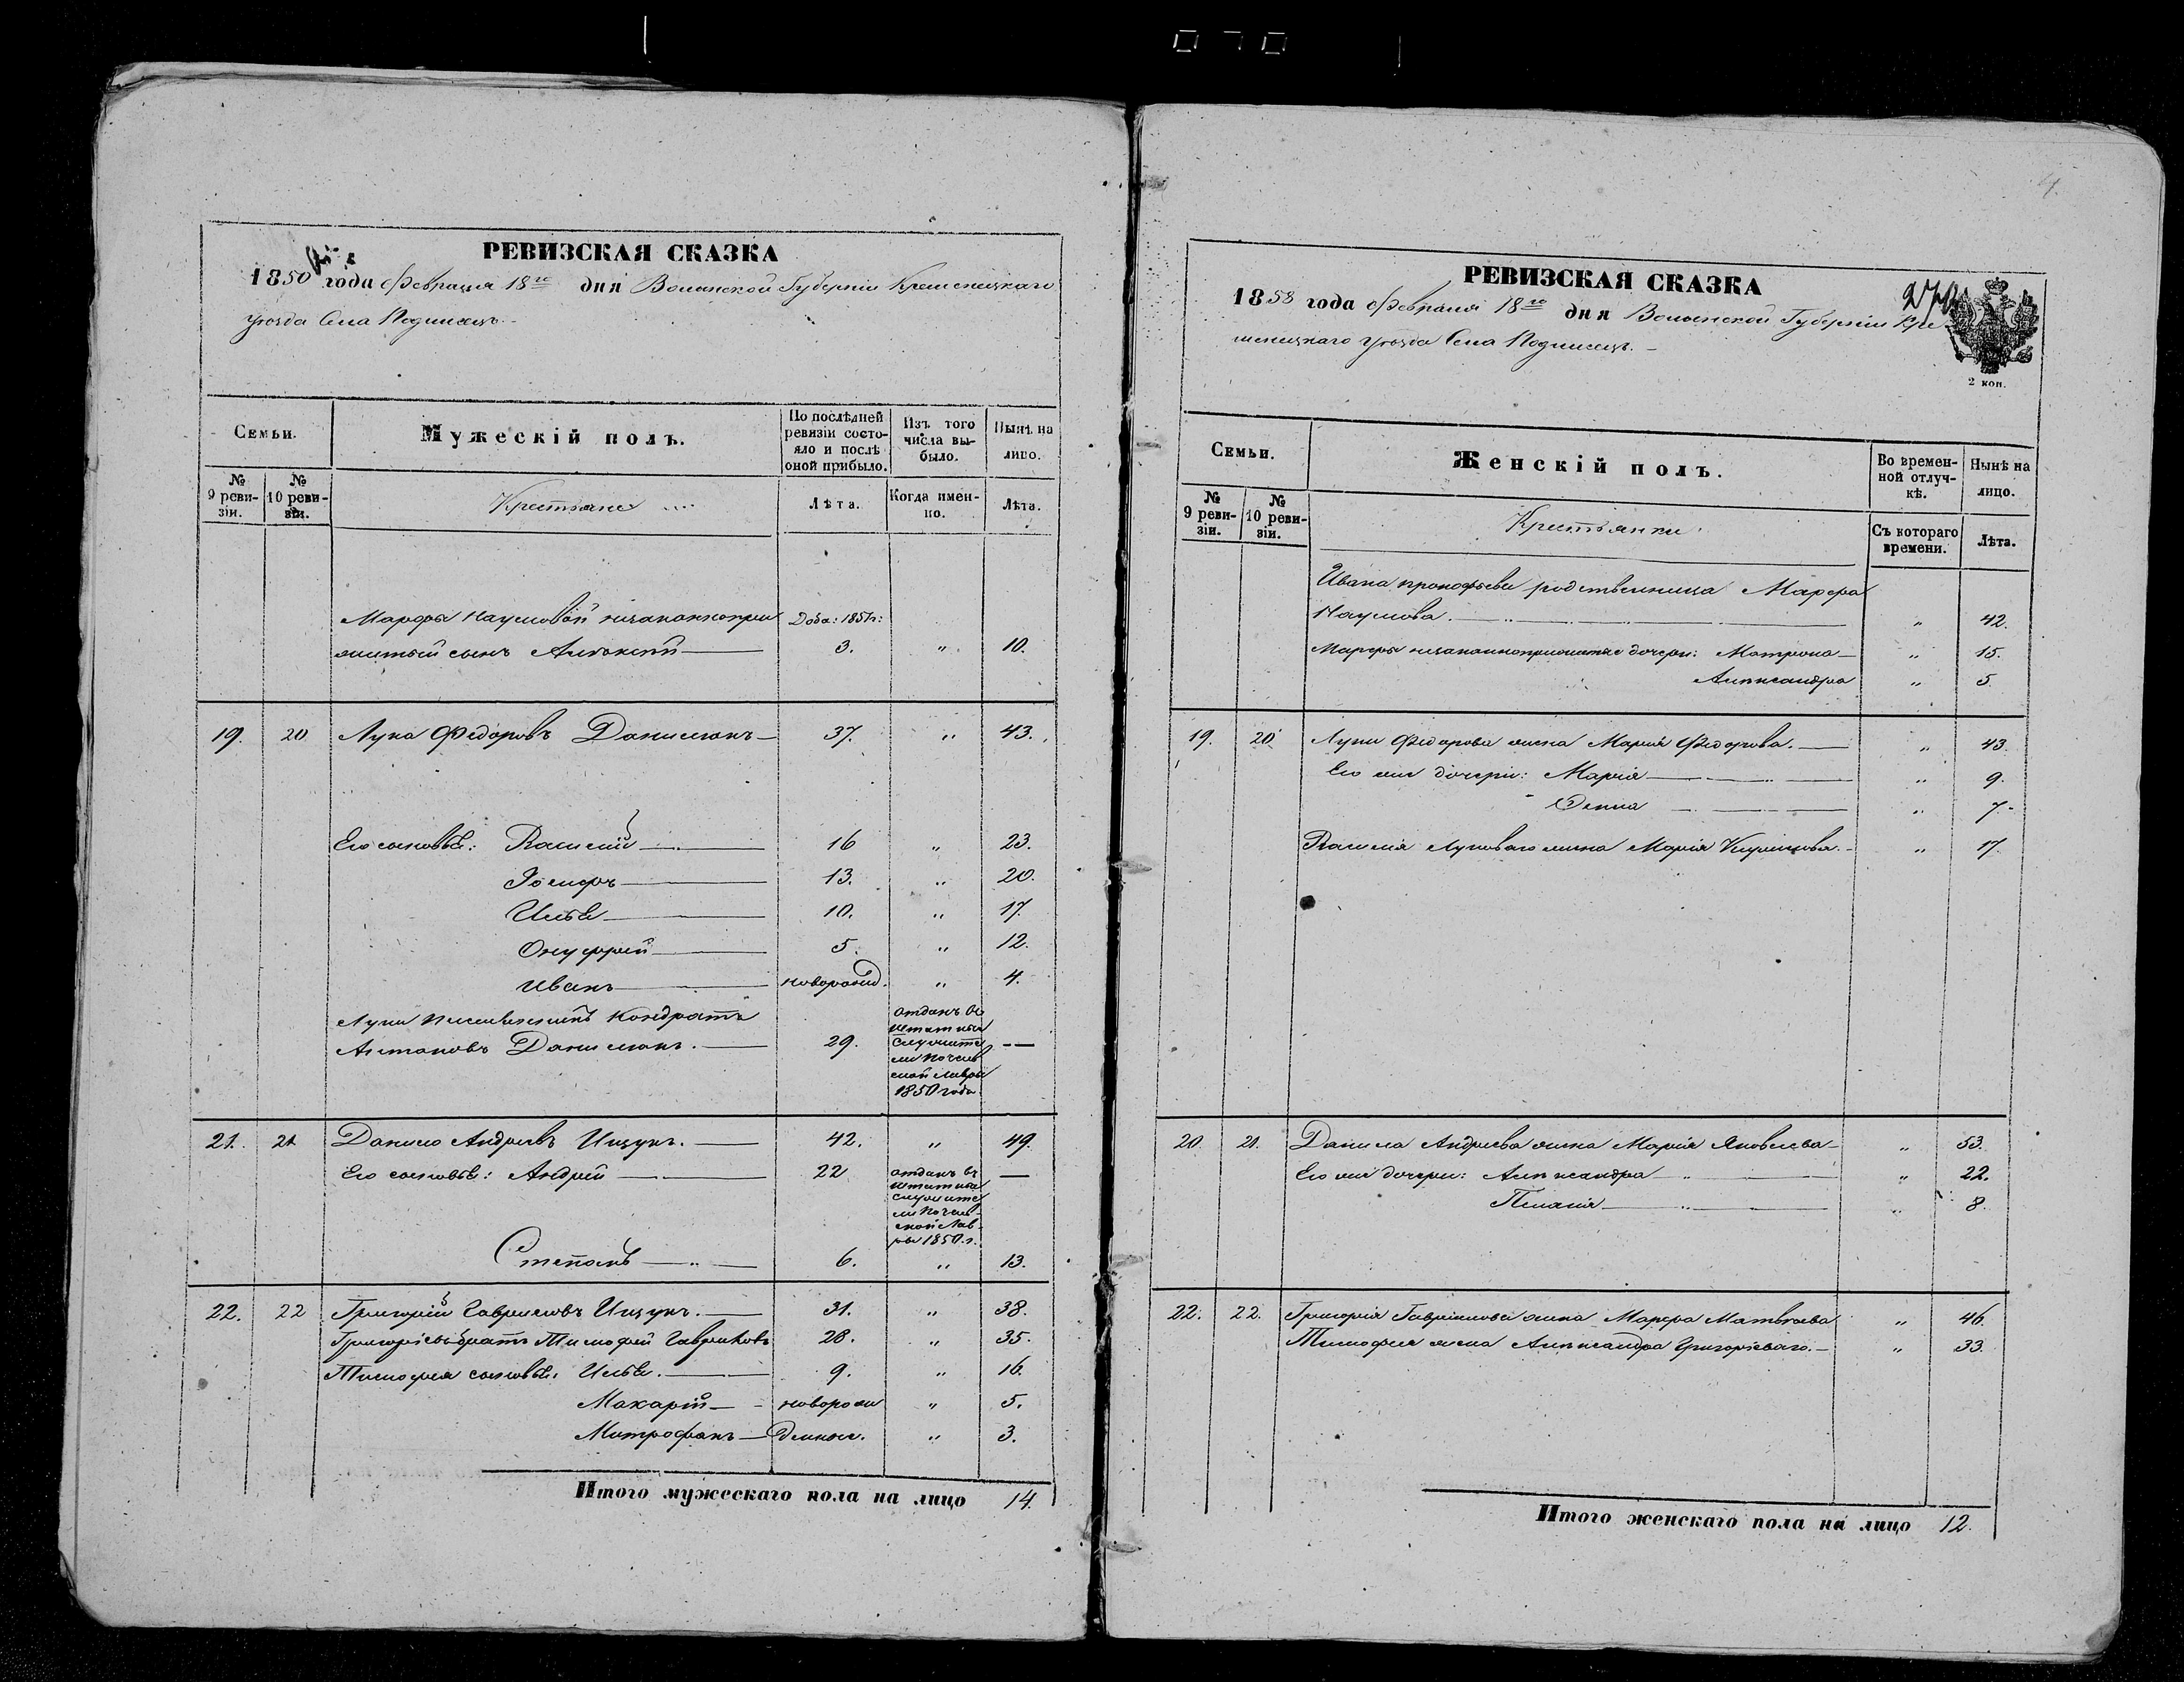 РЕВИЗСКАЯ СКАЗКА
1850 года Февраля 18го дня Волынской Губерніи Кременецкаго
уѣзда Села Подлисецъ.
Семьи.
Мужескій полъ.
По послѣдней ревизіи состояло и послѣ оной прибыло.
Изъ того числа выбыло.
Нынѣ на лицо.
№ 9 ревизіи.
№ 10 ревизіи.
Крестьяне
Лѣта.
Когда именно.
Лѣта.
Марфы Наумовой незаконнопри Доба: 1851г:
житый сынъ Алексѣй 3. „ 10.
19. 20 Лука Федоровъ Данилюкъ 37. „ 43.
Его сыновья: Василій 16 „ 23.
Іосифъ 13. „ 20.
Илья 10. „ 17.
Онуфрій 5. „ 12.
Иванъ новорожд. „ 4.
Луки племянникъ Кондратъ
Антоновъ Данилюкъ. 29. отданъ въ штатные служители Почаевской лавры 1850 года —
21. 21 Данило Андреевъ Ищукъ. 42. „ 49.
Его сыновья: Андрей 22 отданъ въ штатные служители Почаевской Лавры 1850. г. —
Степанъ 6. „ 13.
22. 22 Григорій Гавриловъ Ищукъ. 31. „ 38.
Григоріевъ братъ Тимофей Гавриловъ 28. „ 35.
Тимофея сыновья: Илья. 9. „ 16.
Макарій новорож „ 5.
Митрофанъ денные. „ 3.
Итого мужескаго пола на лицо 14.
РЕВИЗСКАЯ СКАЗКА
1858 года Февраля 18го дня Волынской Губерніи Кре
менецкаго уѣзда Села Подлисецъ.
2 коп.
Семьи.
Женскій полъ.
Во временной отлучкѣ.
Нынѣ на лицо.
№ 9 ревизіи.
№ 10 ревизіи.
Крестьянки
Съ котораго времени.
Лѣта.
Ивана Прокофьева родственница Марфа
Наумова. „ 42.
Марфы незаконноприжитые дочери: Матрона „ 15.
Александра „ 5.
19. 20 Луки Федорова жена Марія Федорова. „ 43.
Его же дочери: Марія „ 9.
„ 7.
Василія Луковаго жена Марія „ 17.
20. 21. Данила Андреева жена Марія Яковлева „ 53.
Его же дочери: Александра „ 22.
Пелагія „ 8.
22. 22. Григорія Гаврилова жена Марфа Матвѣева „ 46.
Тимофея жена Александра Григоріеваго. „ 33.
Итого женскаго пола на лицо 12.